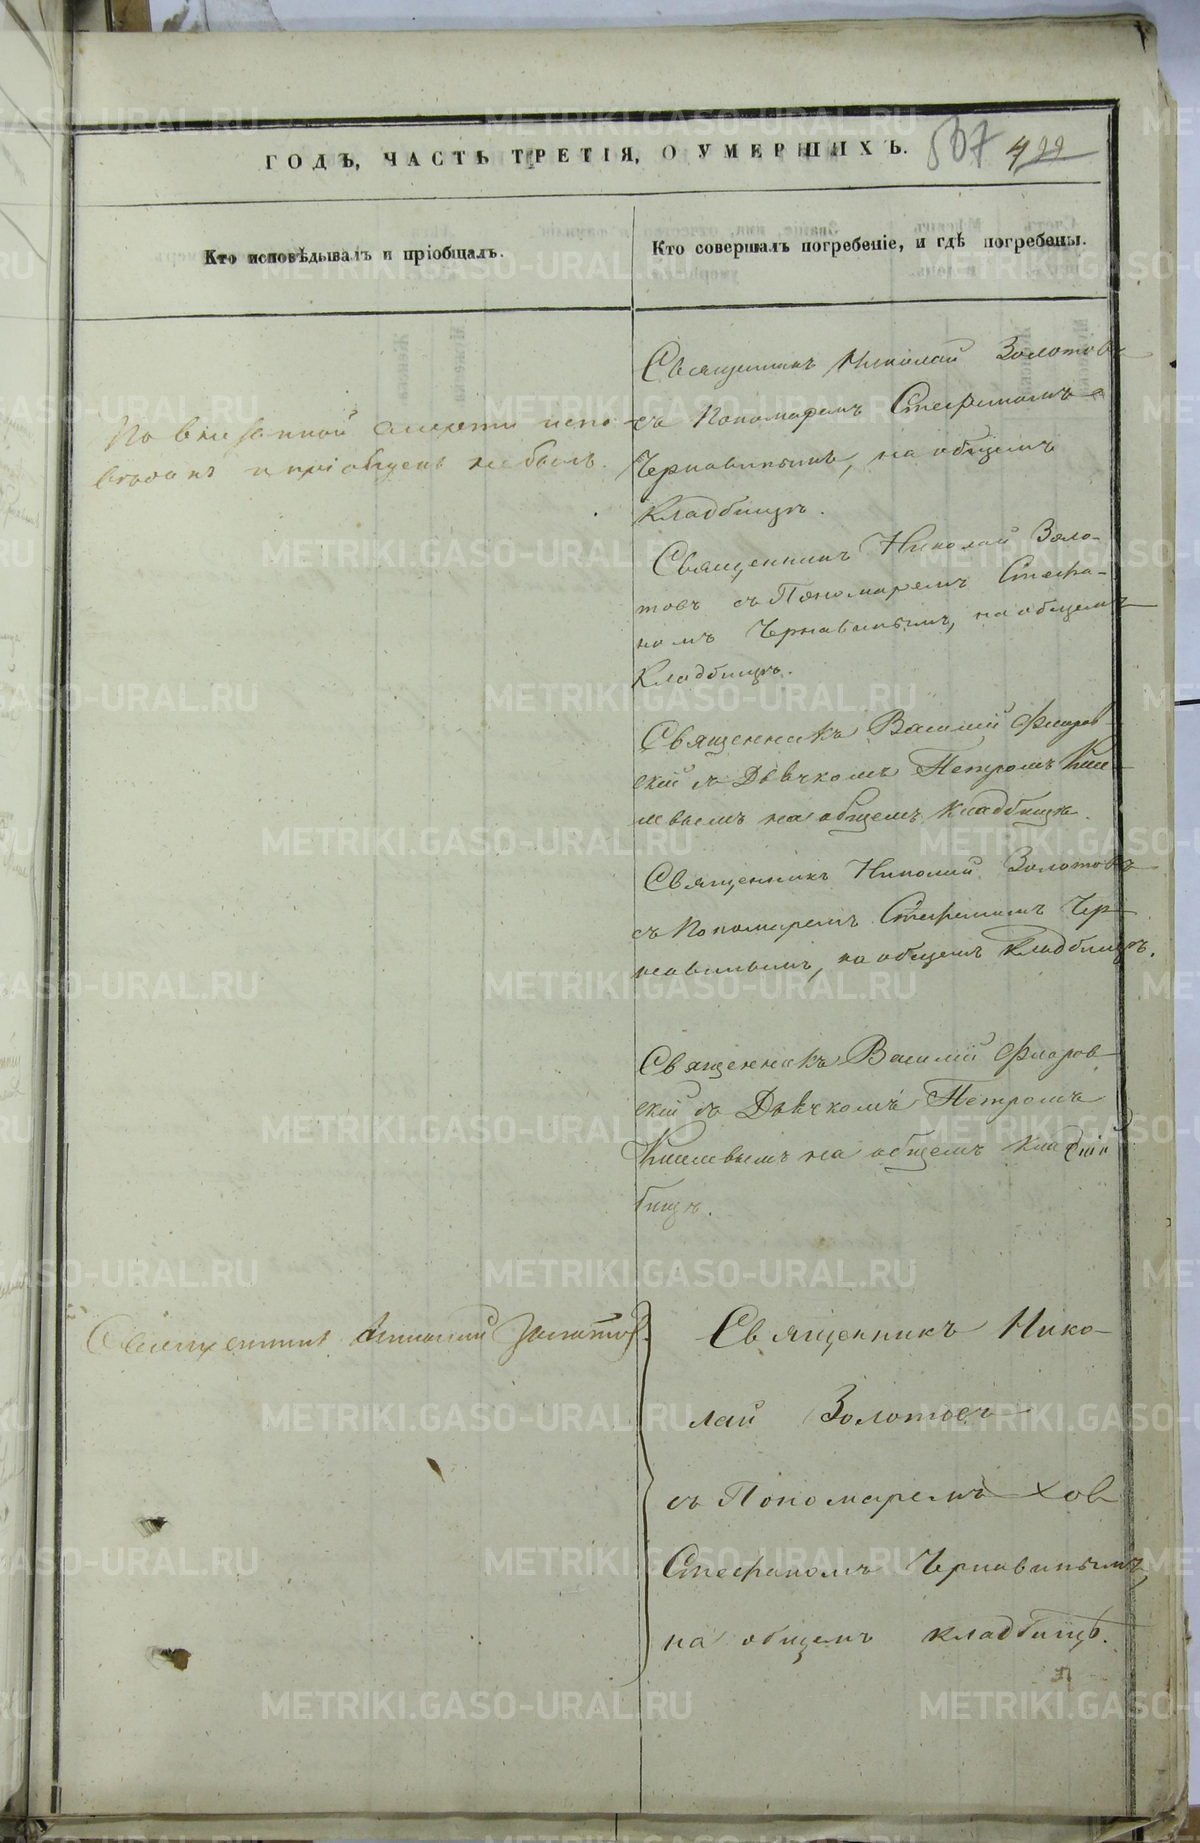 ГОДЪ, ЧАСТЬ ТРЕТІЯ, О УМЕРШИХЪ.
507 499
Кто исповѣдывалъ и пріобщалъ.
Кто совершалъ погребеніе, и гдѣ погребены.
По внезапной смерти испо-
вѣданъ и пріобщенъ не былъ.
Священникъ Николай Золотовъ
съ Пономаремъ Стефаномъ
Чернавинымъ, на общемъ
кладбищѣ.
Священникъ Николай Золо-
товъ съ Пономаремъ Стефа-
номъ Чернавинымъ, на общемъ
кладбищѣ.
Священникъ Василій Флоров-
скій съ Дьячкомъ Петромъ
на общемъ кладбищѣ.
Священникъ Николай Золотовъ
съ Пономаремъ Стефаномъ Чер-
навинымъ, на общемъ кладбищѣ.
Священникъ Василій Флоров-
скій съ Дьячкомъ Петромъ
на общемъ клад
бищѣ.
Священникъ Золотовъ.
Священникъ Нико-
лай Золотовъ
съ Пономаремъ
Стефаномъ Чернавинымъ,
на общемъ кладбищѣ.
METRIKI.GASO-URAL.RU